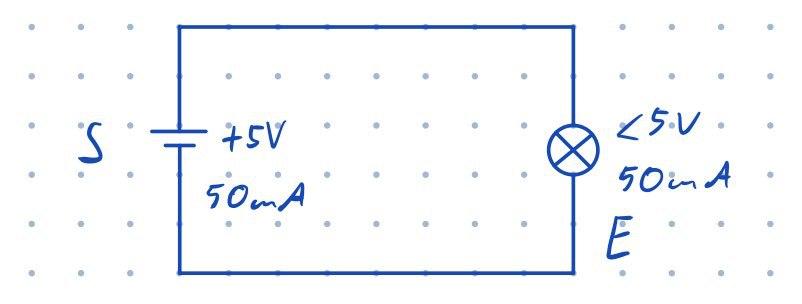 S
+5V
50mA
<5V
50mA
E